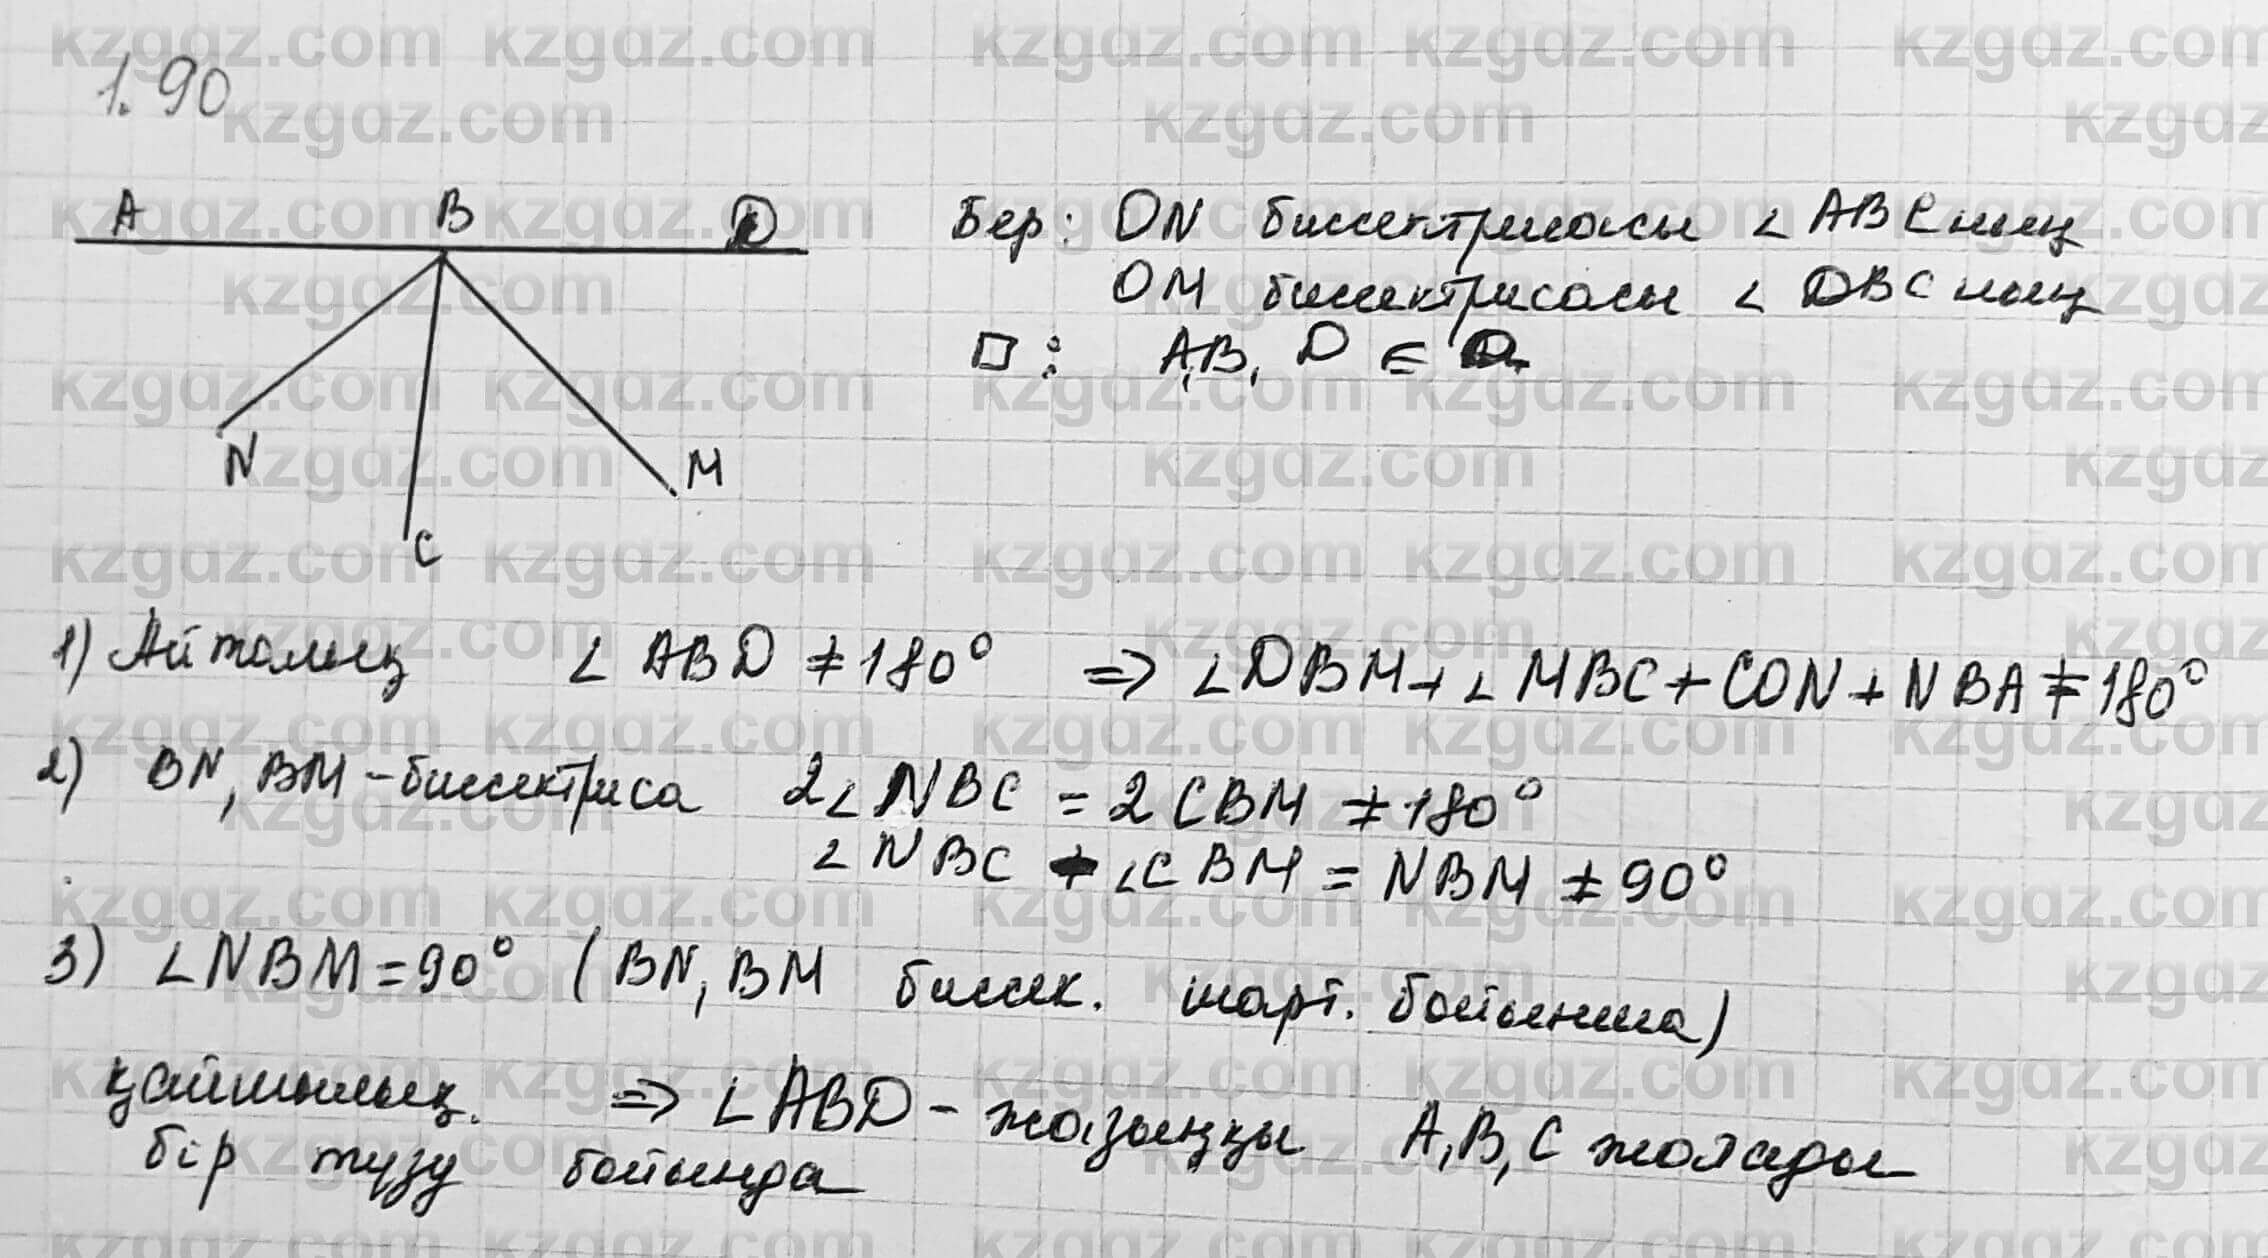 1.90
A B D
Бер: ON биссектрисасы ∠ ABC ның
OM биссектрисасы ∠ DBC ның
□: A, B, D ∈
N M
C
1) Айталық ∠ ABD ≠ 180° => ∠DBM + ∠MBC + CON + NBA ≠ 180°
2) BN, BM - биссектриса 2∠NBC = 2CBM ≠ 180°
∠NBC + ∠CBM = NBM ≠ 90°
3) ∠NBM = 90° (BN, BM биссек. шарт. бойынша)
қайшылық. => ∠ABD - жазыңқы A, B, C жатады
бір түзу бойында
kzgdz.com